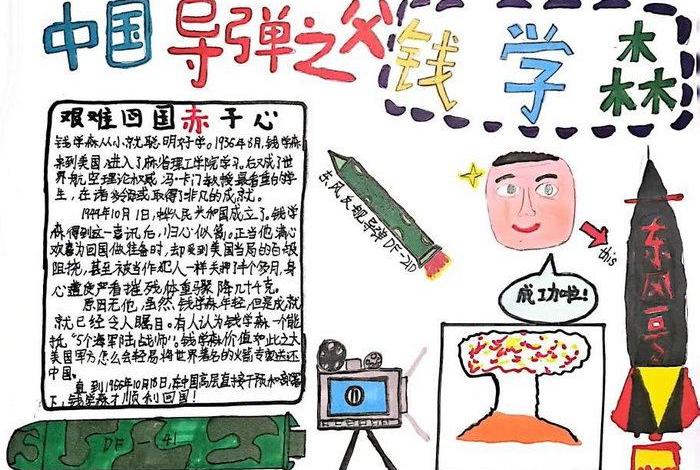 中国导弹之父钱学森
艰难回国赤子心
钱学森从小就聪明好学。1935年8月,钱学森
来到美国,进入了麻省理工学院学习。后又成了世
界航空理论权威冯·卡门教授最看重的学
生,在诸多领域取得了非凡的成就。
1949年10月1日,中华人民共和国成立了。钱学
森得到这一喜讯后,归心似箭。正当他满心
欢喜为回国做准备时,却受到美国当局的百般
阻挠,甚至被当作犯人一样关押了个多月,身
心遭受严看摧残,体重骤降几十千克。
原因无他,虽然钱学森年轻,但是成就
就已经令人瞩目。有人认为钱学森一个能
抵“5个海军陆战师”。钱学森价值如此之大
美国军方怎么会轻易将世界著名的火箭专家送还
中国。
直到1955年10月8日,在中国高层直接干预和部署
下,钱学森才顺利回国!
东风反舰导弹DF-21D
this
成功啦!
东风一号
DF-41